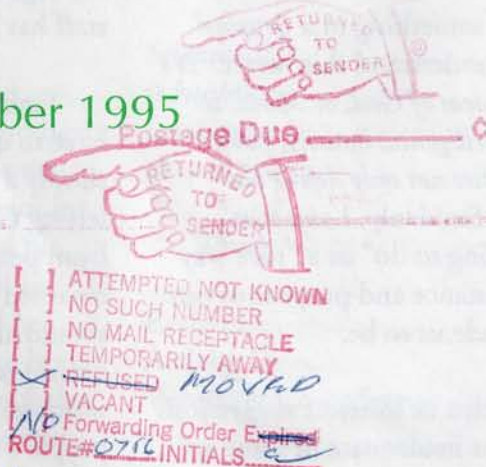 RETURNED
TO
SENDER
ber 1995
Postage Due ¢
RETURNED
TO
SENDER
[ ] ATTEMPTED NOT KNOWN
[ ] NO SUCH NUMBER
[ ] NO MAIL RECEPTACLE
[ ] TEMPORARILY AWAY
REFUSED MOVED
[ ] VACANT
NO Forwarding Order Expired
ROUTE# INITIALS